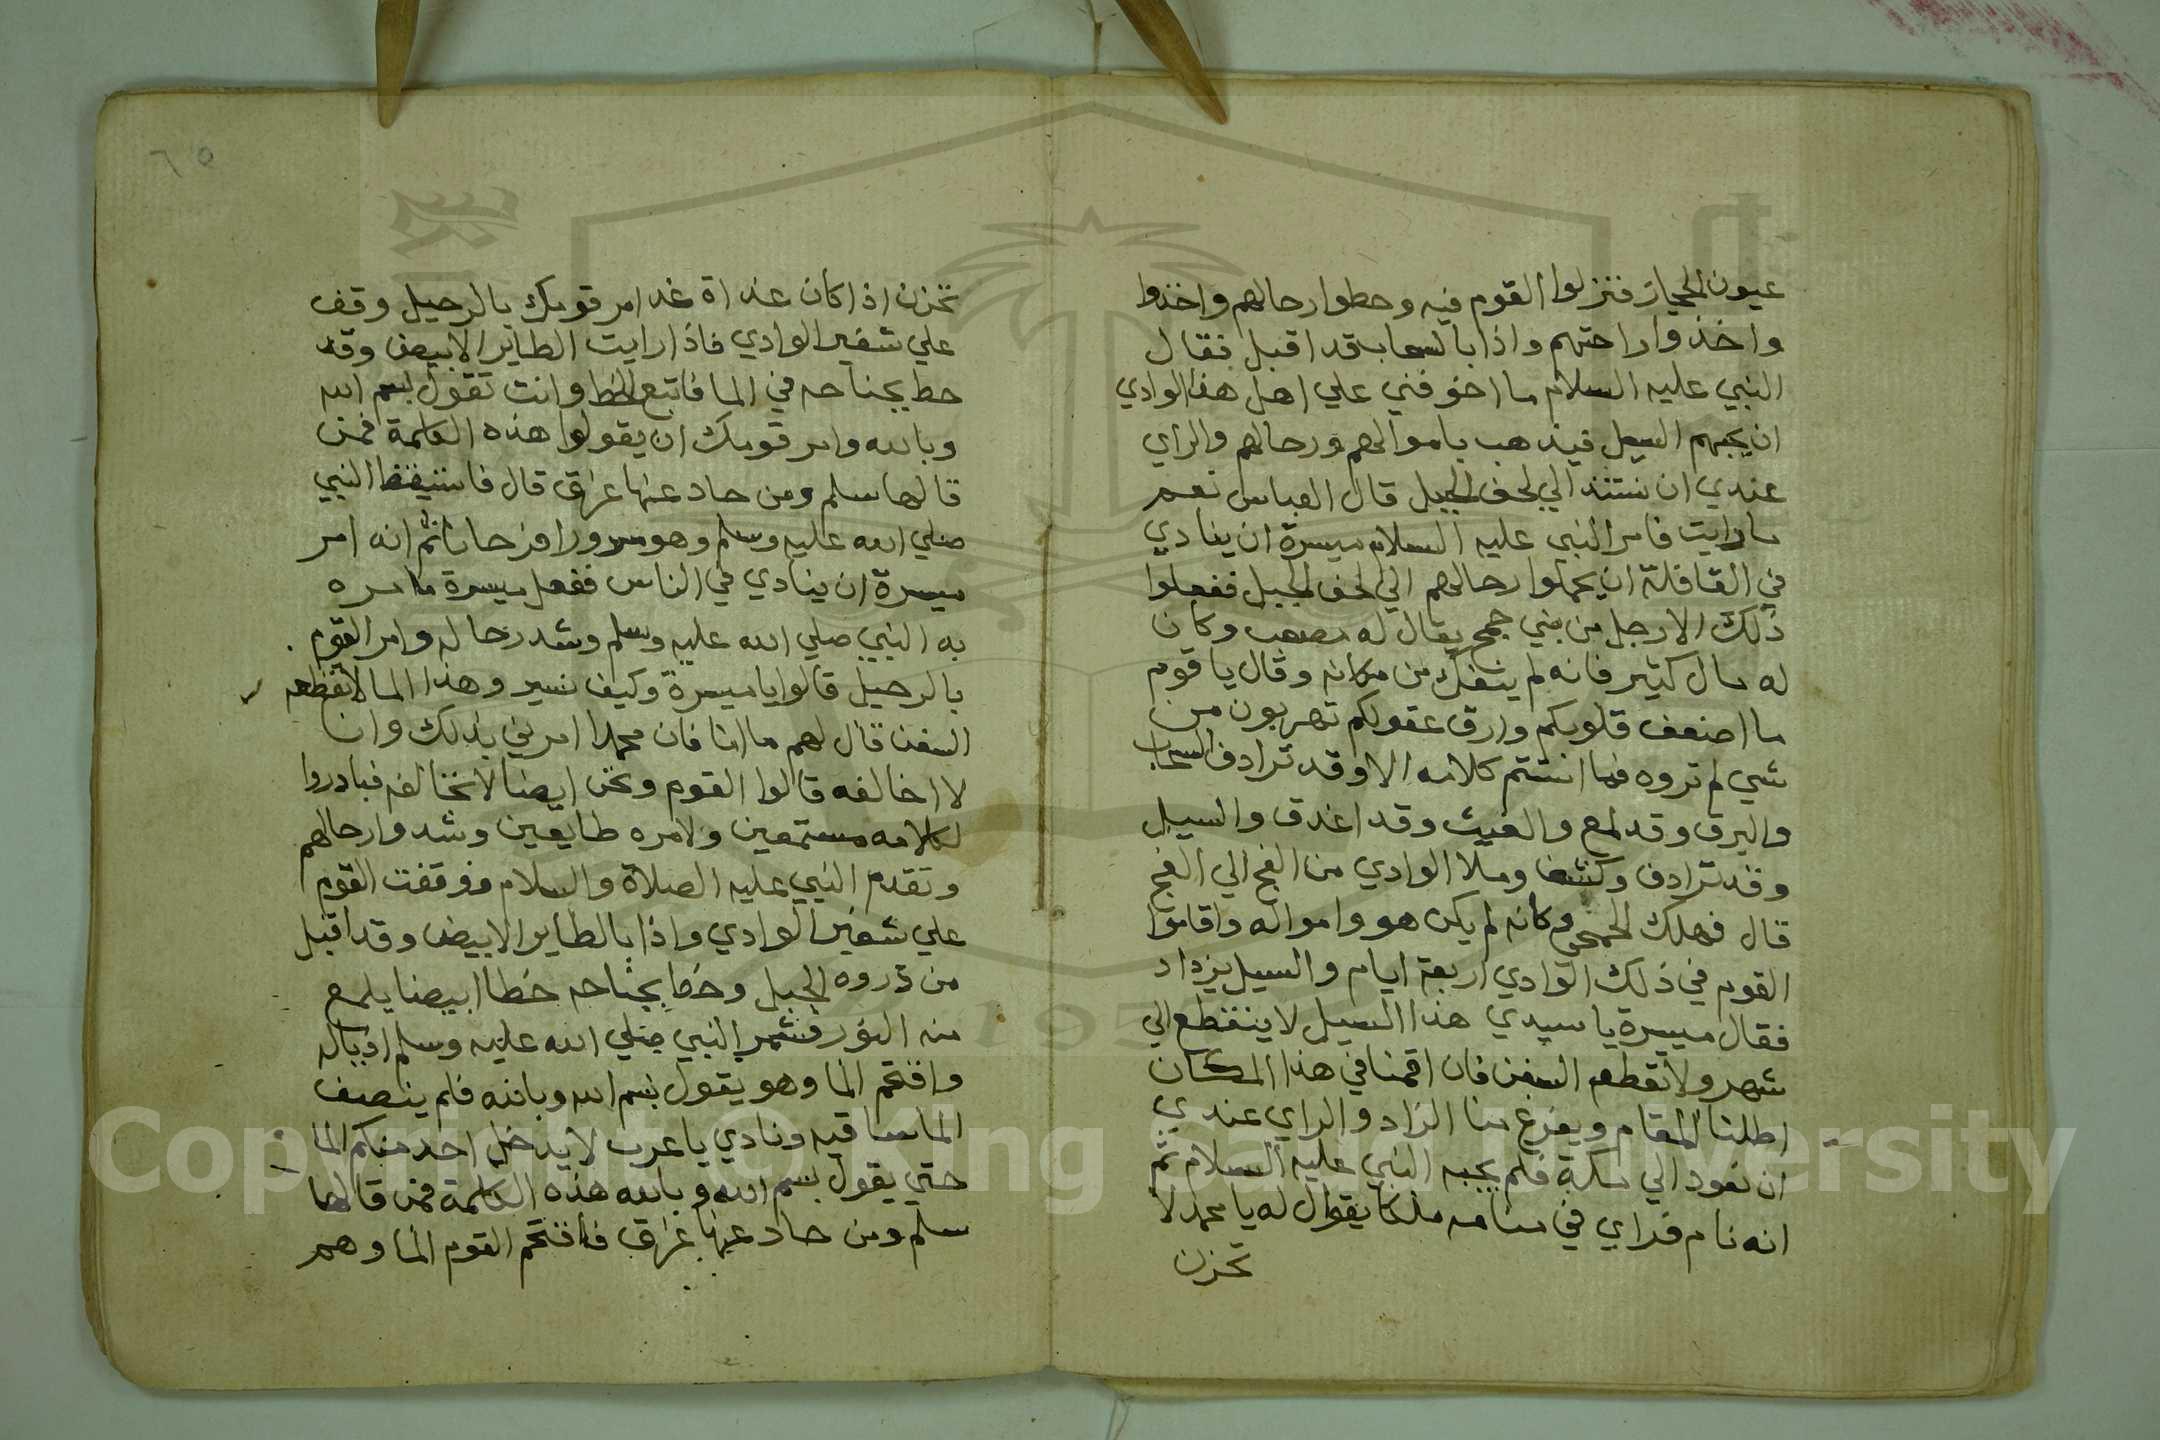 عيون الحجاز فنزلوا القوم فيه وحطوا رحالهم واخذوا
واخذوا راحتهم واذا بالسحاب قد اقبل فقال
النبي عليه السلام ما اخوفني علي اهل هذا الوادي
ان يجيهم السيل فيذهب باموالهم ورحالهم والراي
عندي ان نستند الي لحف الجبل قال العباس نعم
ما رايت فامر النبي عليه السلام ميسرة ان ينادي
في القافلة ان يحملوا رحالهم الي لحف الجبل ففعلوا
ذلك الا رجل من بني جمح يقال له مصعب وكان
له مال كثير فانه لم ينفك من مكانه وقال يا قوم
ما اضعف قلوبكم وارق عقولكم تهربون من
شي لم تروه فما استتم كلامه الا وقد ترادف السحاب
والبرق وقد لمع والغيث وقد اغدق والسيل
وقد ترادف وكثف وملا الوادي من الفج الي الفج
قال فهلك الجمحي وكانه لم يكن هو وامواله واقاموا
القوم في ذلك الوادي اربعة ايام والسيل يزداد
فقال ميسرة يا سيدي هذا السيل لا ينقطع الي
شهر ولا تقطعه السفن فان اقمنا في هذا المكان
اطلنا المقام ويفرغ منا الزاد والراي عندي
ان نعود الي مكة فلم يجبه النبي عليه السلام ثم
انه نام فراي في منامه ملكا يقول له يا محمد لا
تحزن
٦٥
تحزن اذا كان غداة غد امر قومك بالرحيل وقف
علي شفير الوادي فاذا رايت الطاير الابيض وقد
حط بجناحه في الما فاتبع الخط وانت تقول بسم الله
وبالله وامر قومك ان يقولوا هذه الكلمة فمن
قالها سلم ومن حاد عنها غرق قال فاستيقظ النبي
صلي الله عليه وسلم وهو مسرورا فرحانا ثم انه امر
ميسرة ان ينادي في الناس ففعل ميسرة ما امره
به النبي صلي الله عليه وسلم وشد رحاله وامر القوم
بالرحيل قالوا يا ميسرة وكيف نسير وهذا الما لا تقطعه
السفن قال لهم ما انا فان محمدا امرني بذلك وانا
لا اخالفه قالوا القوم ونحن ايضا لا نخالفه فبادروا
لكلامه مستمعين ولامره طايعين وشدوا رحالهم
وتقدم النبي عليه الصلاة والسلام ووقفت القوم
علي شفير الوادي واذا بالطاير الابيض وقد اقبل
من ذروه الجبل وخط بجناحه خطا ابيضا يلمع
منه النور فشمر النبي صلي الله عليه وسلم اذياله
واقتحم الما وهو يقول بسم الله وبالله فلم ينصف
الما ساقيه ونادي يا عرب لا يدخل احد منكم الما
حتي يقول بسم الله وبالله هذه الكلمة فمن قالها
سلم ومن حاد عنها غرق فاقتحم القوم الما وهم
Copyright © King Saud University
195